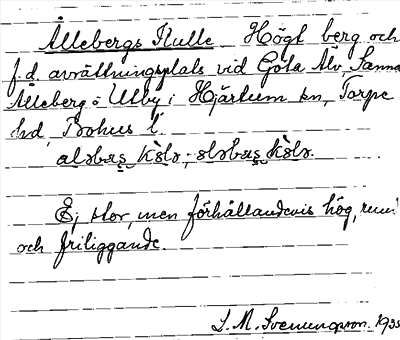 Ållebergs Kulle Högt berg och
f.d. avrättningsplats vid Göta Älv, Samma
Ålleberg = Ulby i Hjärtum sn, Torpe
hd, Bohus l.
Ej stor, men förhållandevis hög,
och friliggande.
S. M. Svenungsson. 1935